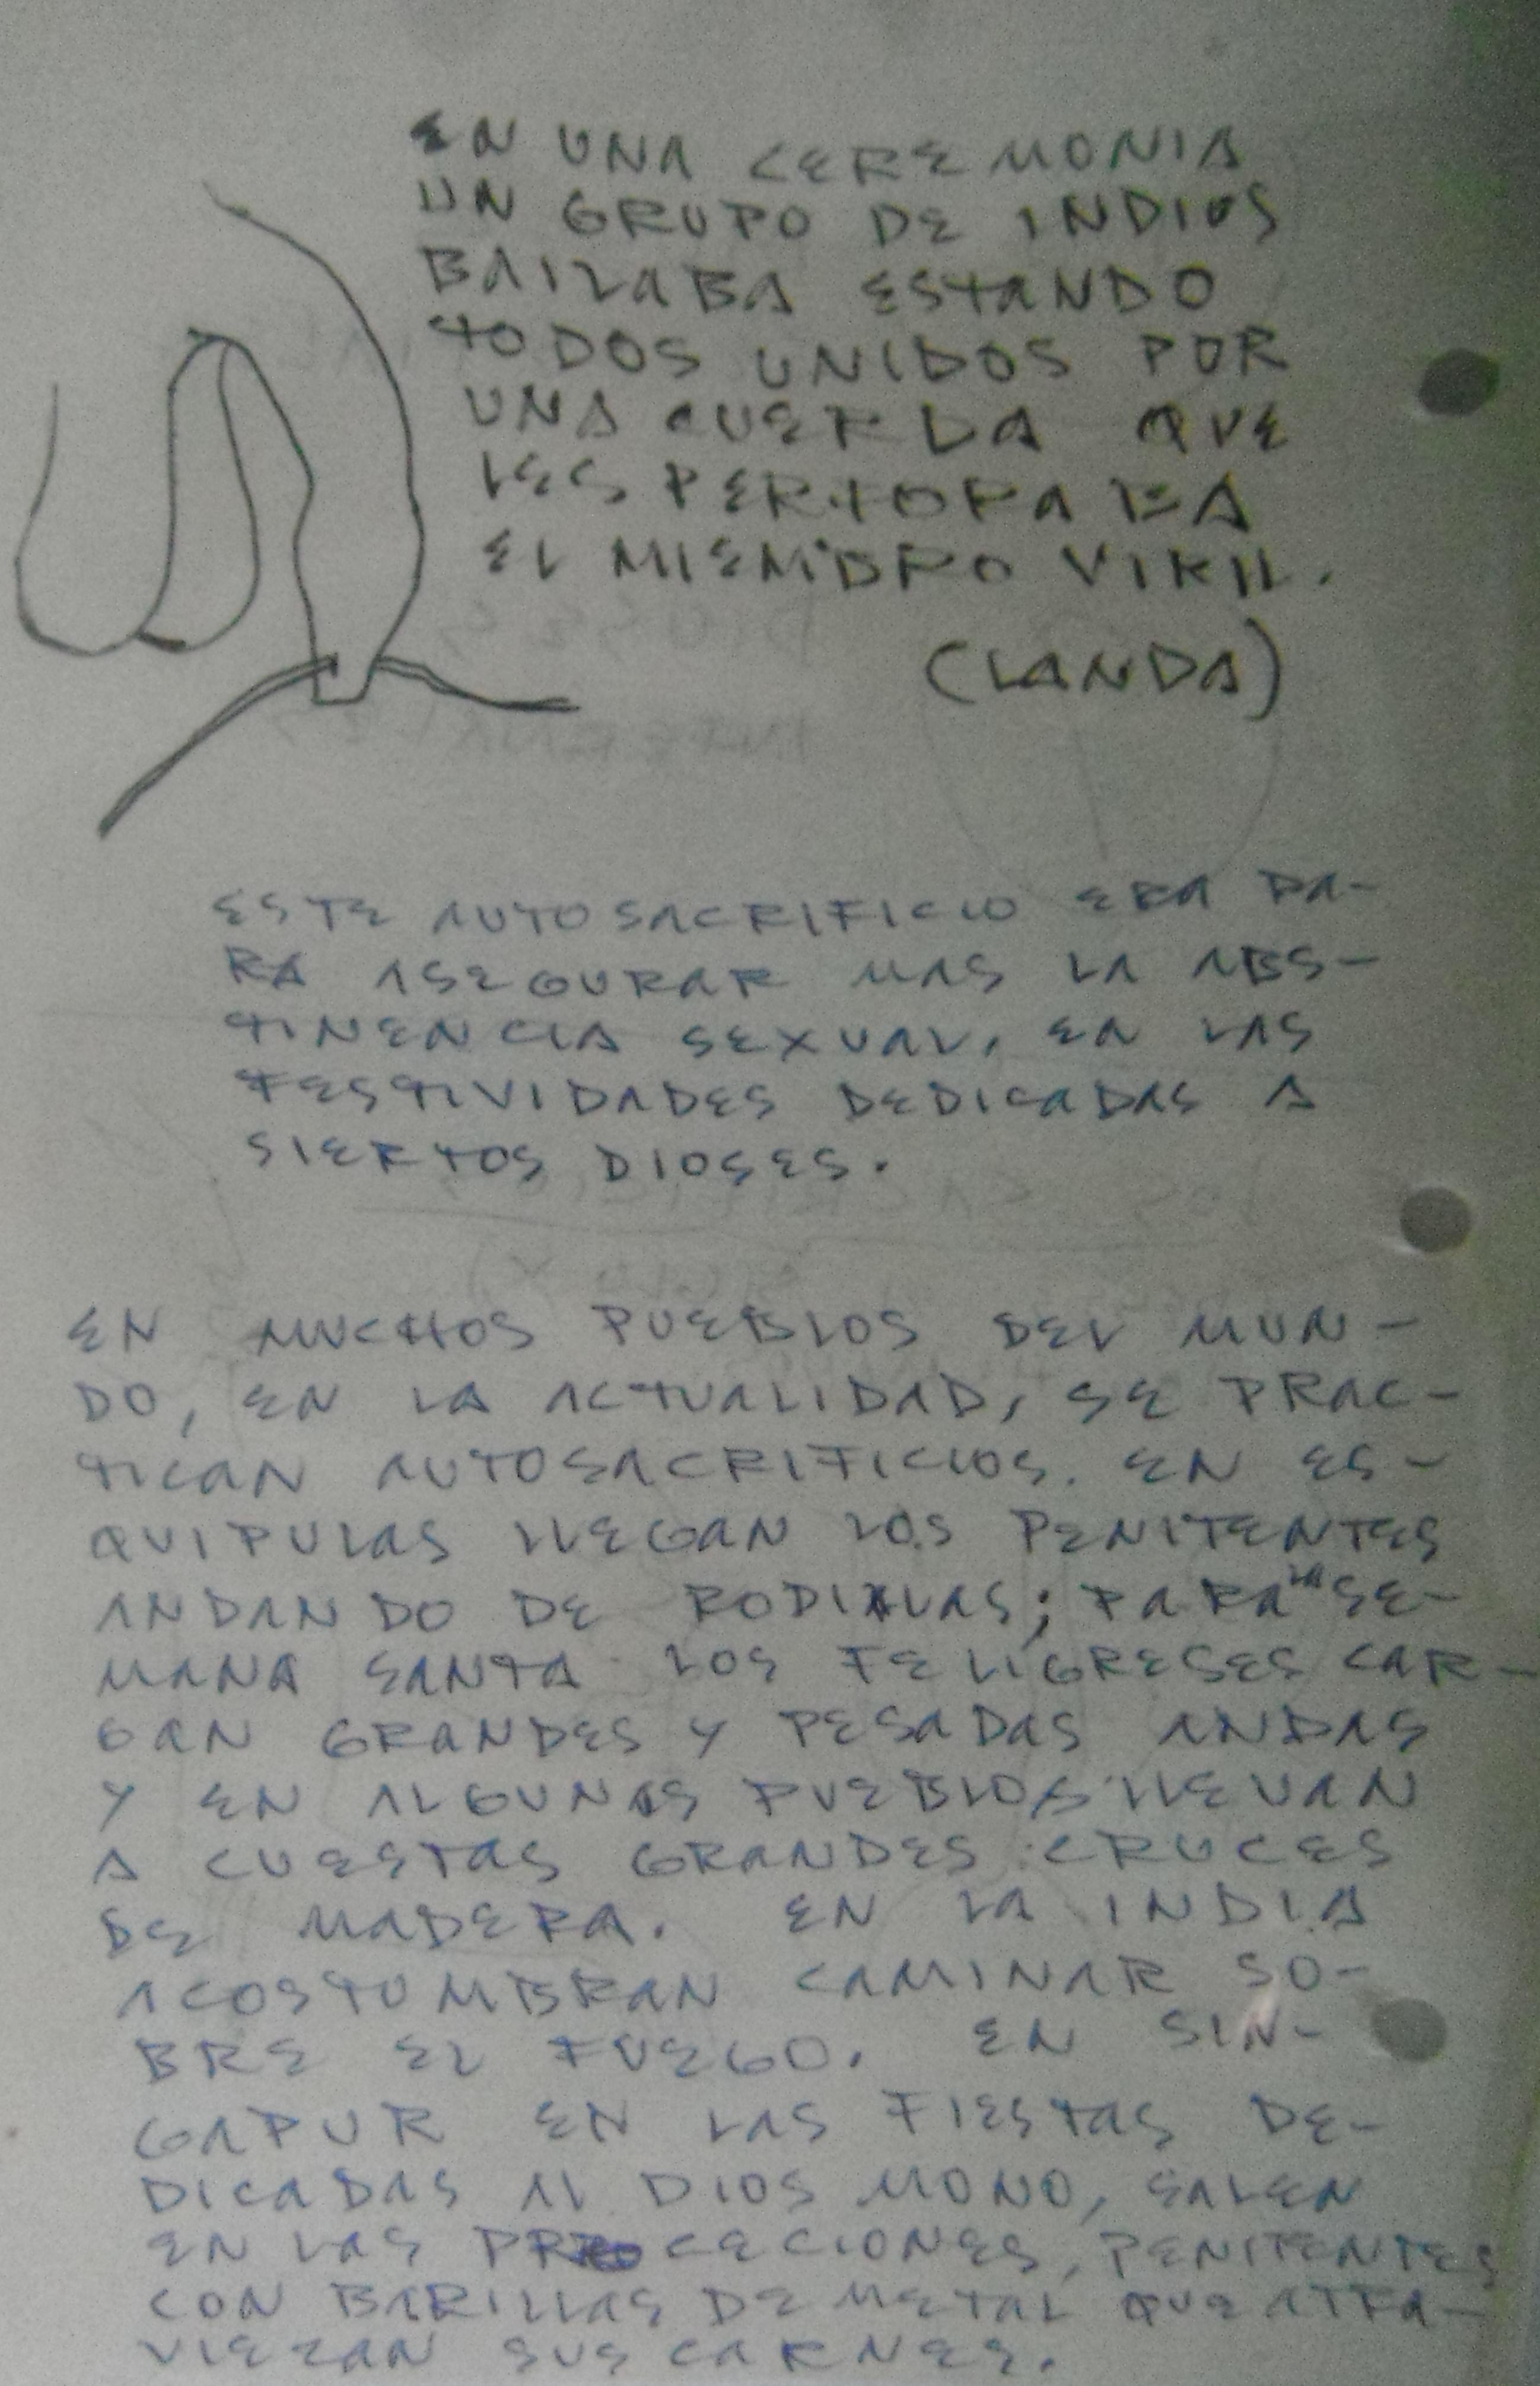 EN UNA CEREMONIA
UN GRUPO DE INDIOS
BAILABA ESTANDO
TODOS UNIDOS POR
UNA CUERDA QUE
LES PERFORABA
EL MIEMBRO VIRIL.
(LANDA)
ESTE AUTOSACRIFICIO ERA PA-
RA ASEGURAR MAS LA ABS-
TINENCIA SEXUAL, EN LAS
FESTIVIDADES DEDICADAS A
SIERTOS DIOSES.
EN MUCHOS PUEBLOS DEL MUN-
DO, EN LA ACTUALIDAD, SE PRAC-
TICAN AUTOSACRIFICIOS. EN ES-
QUIPULAS LLEGAN LOS PENITENTES
ANDANDO DE RODILLAS; PARA LA SE-
MANA SANTA LOS FELIGRESES CAR-
GAN GRANDES Y PESADAS ANDAS
Y EN ALGUNOS PUEBLOS LLEVAN
A CUESTAS GRANDES CRUCES
DE MADERA. EN LA INDIA
ACOSTUMBRAN CAMINAR SO-
BRE EL FUEGO. EN SIN-
GAPUR EN LAS FIESTAS DE-
DICADAS AL DIOS MONO, SALEN
EN LAS PROCECIONES, PENITENTES
CON BARILLAS DE METAL QUE ATRA-
VIEZAN SUS CARNES.